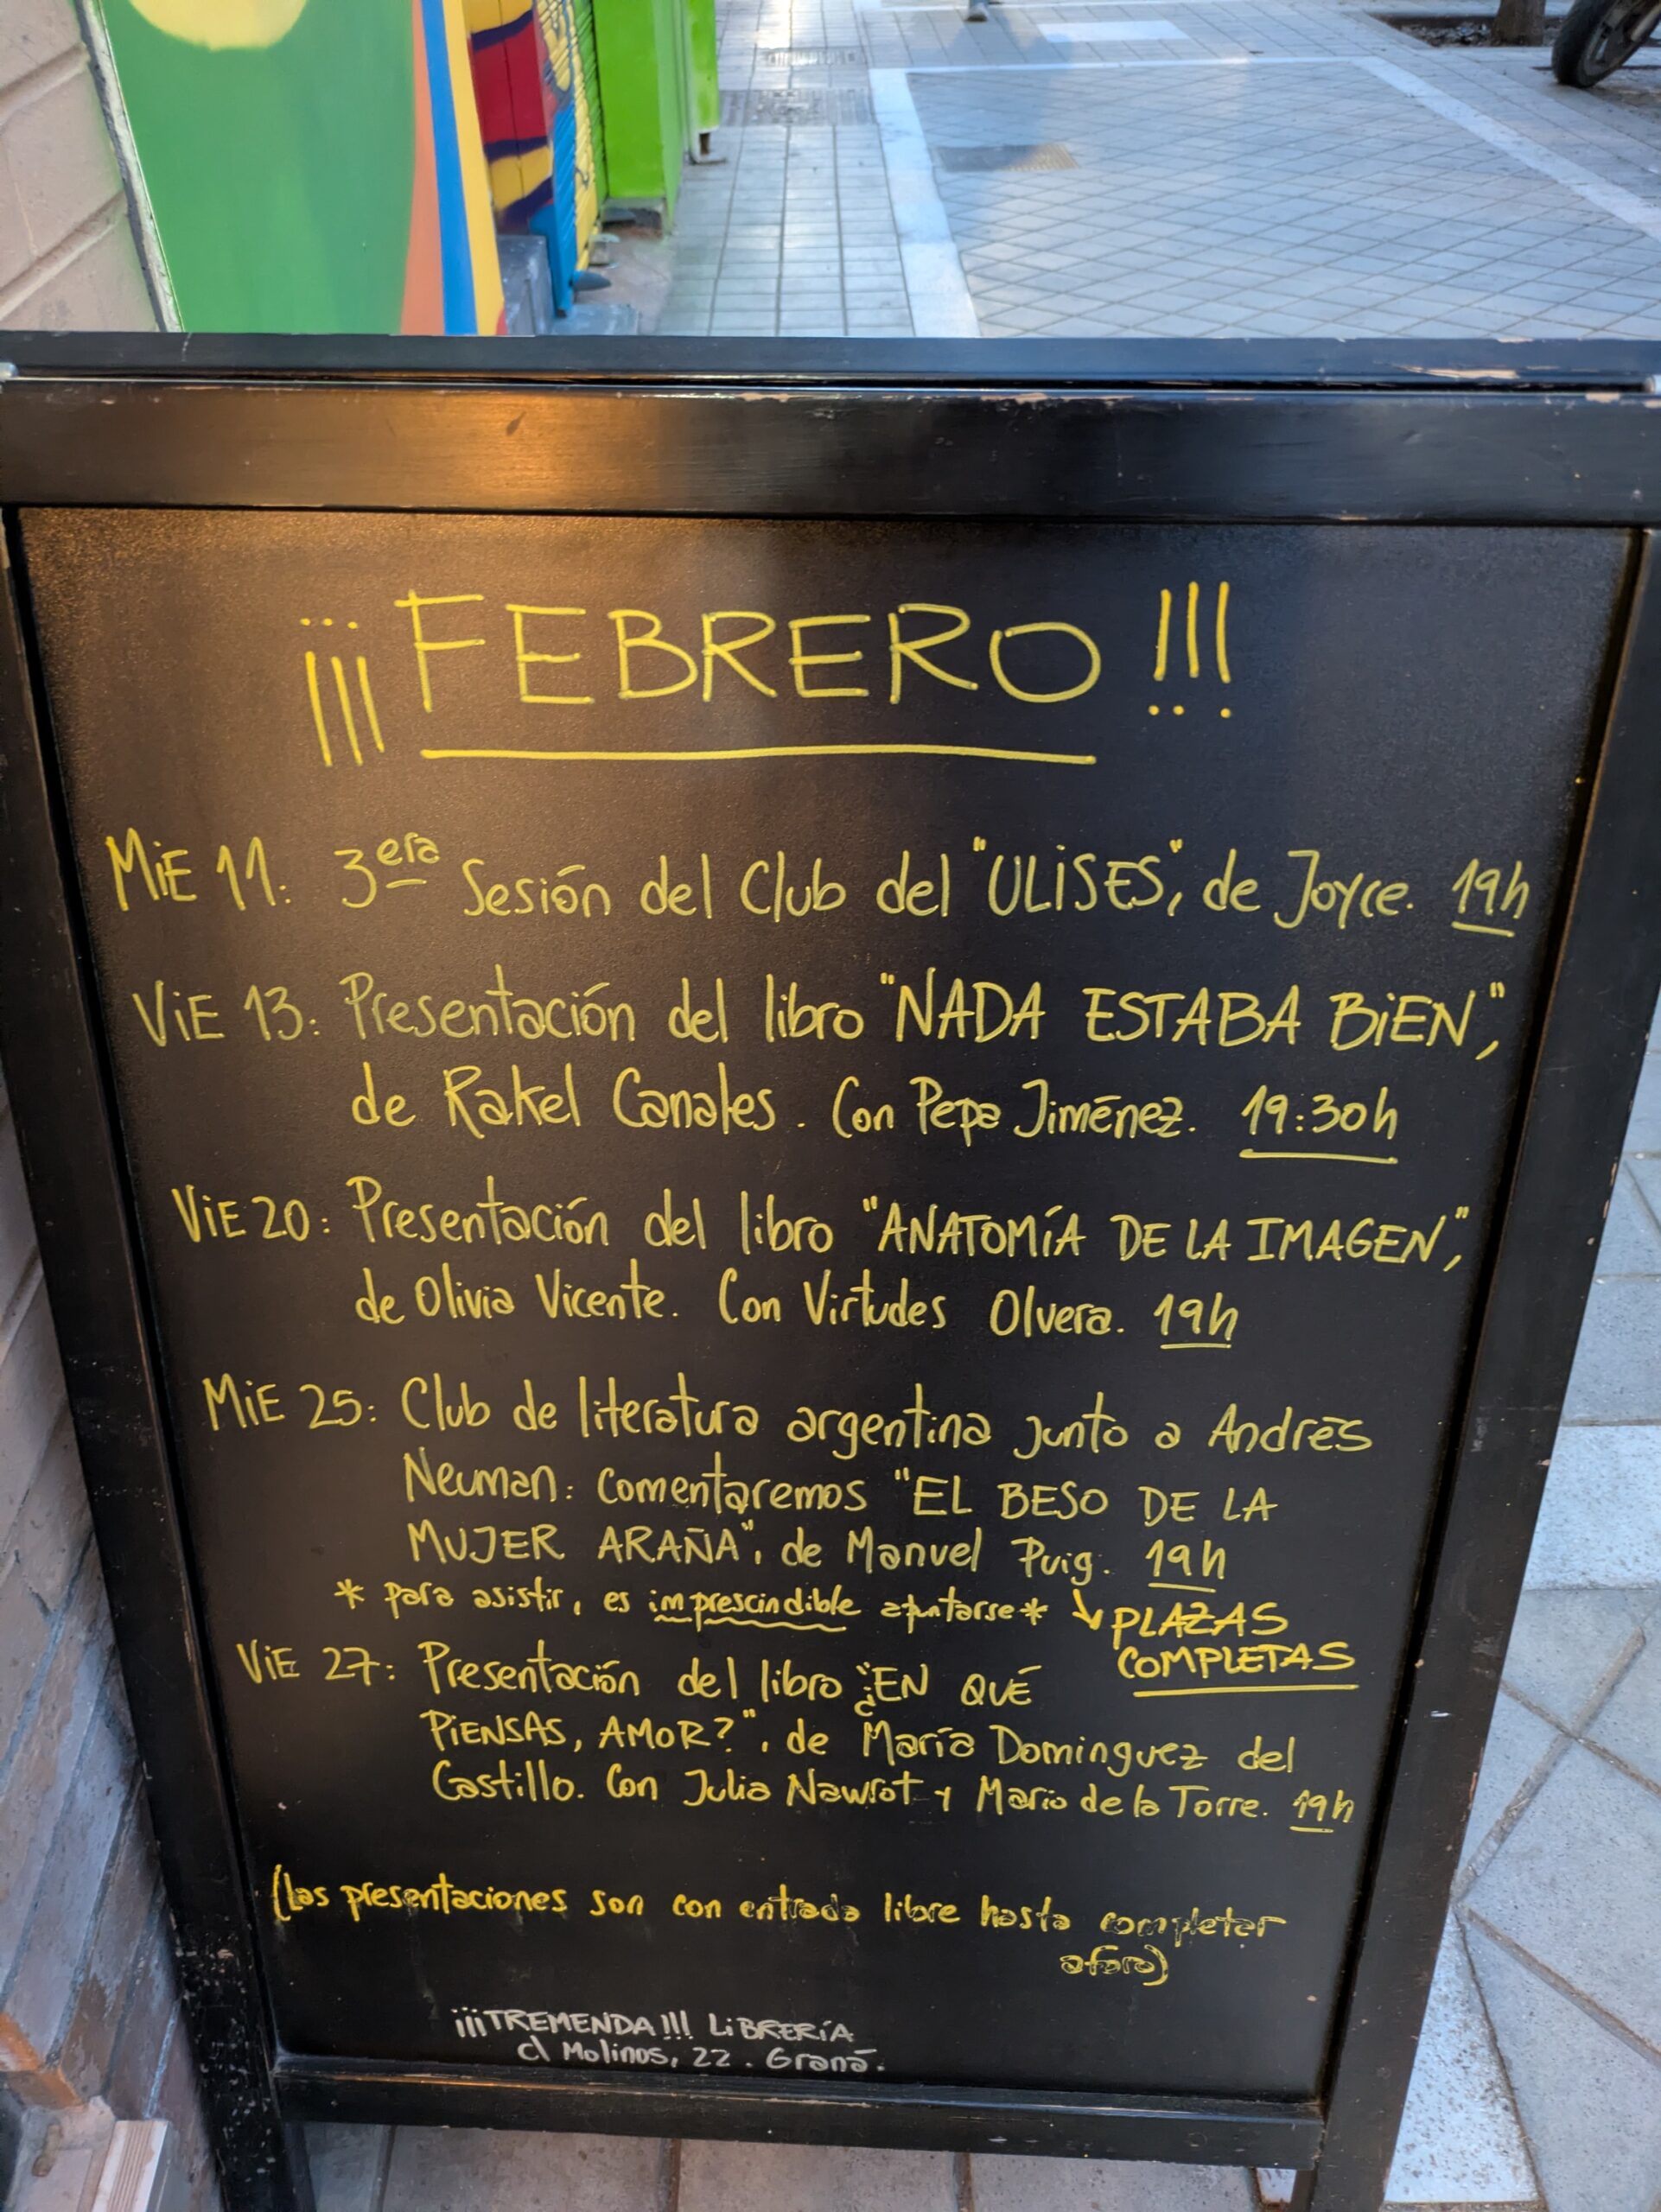 ¡¡¡FEBRERO!!!
MiE 11: 3era Sesión del Club del "ULiSES", de Joyce. 19h
ViE 13: Presentación del libro "NADA ESTABA BiEN",
de Rakel Canales. Con Pepa Jiménez. 19:30h
ViE 20: Presentación del libro "ANATOMíA DE LA IMAGEN",
de Olivia Vicente. Con Virtudes Olvera. 19h
MiE 25: Club de literatura argentina junto a Andrés
Neuman: comentaremos "EL BESO DE LA
MUJER ARAÑA", de Manuel Puig. 19h
* para asistir, es imprescindible apuntarse* ↘ PLAZAS
COMPLETAS
ViE 27: Presentación del libro "¿EN QUÉ
PiENSAS, AMOR?", de María Dominguez del
Castillo. Con Julia Nawrot y Mario de la Torre. 19h
(las presentaciones son con entrada libre hasta completar
aforo)
¡¡¡TREMENDA!!! LiBRERíA
c\ Molinos, 22. Graná.